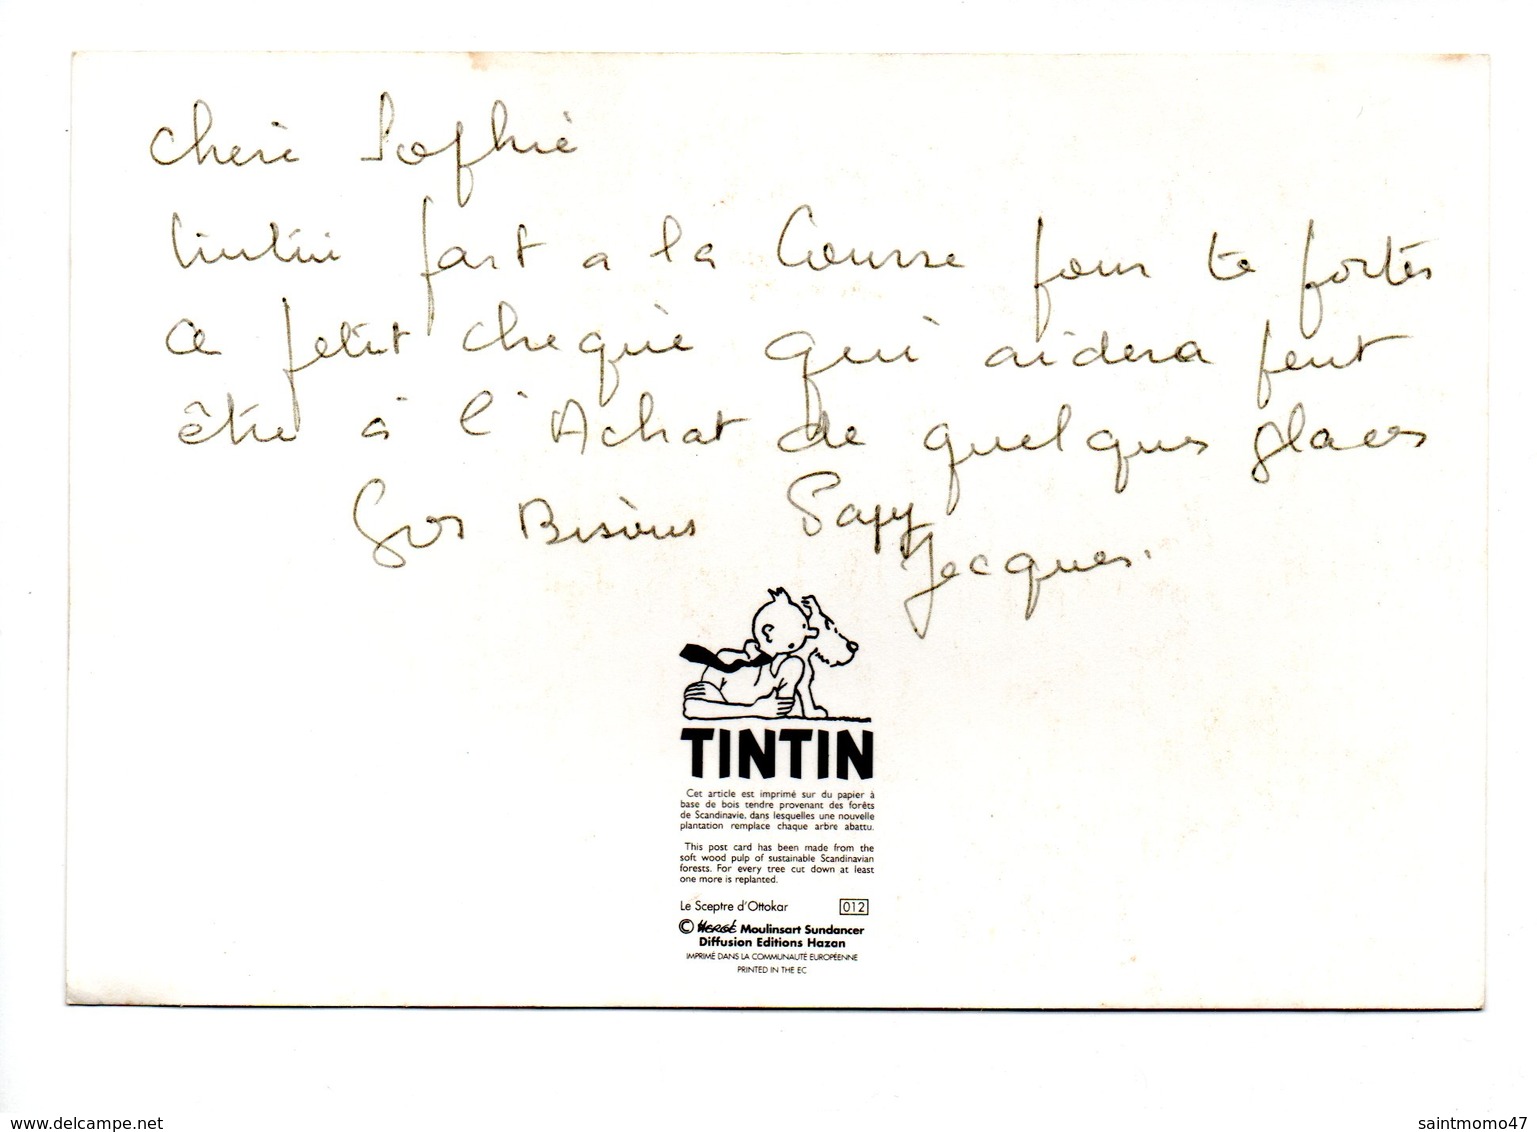 Cherie Sophie
Tintin part a la Course pour te porter
ce petit cheque qui aidera peut
être à l'Achat de quelques glaces
Gros Bisous Papy
Jacques.
TINTIN
Cet article est imprimé sur du papier à
base de bois tendre provenant des forêts
de Scandinavie, dans lesquelles une nouvelle
plantation remplace chaque arbre abattu.
This post card has been made from the
soft wood pulp of sustainable Scandinavian
forests. For every tree cut down at least
one more is replanted.
Le Sceptre d'Ottokar 012
© HERGÉ Moulinsart Sundancer
Diffusion Editions Hazan
IMPRIMÉ DANS LA COMMUNAUTÉ EUROPÉENNE
PRINTED IN THE EC
www.delcampe.net saintmomo47